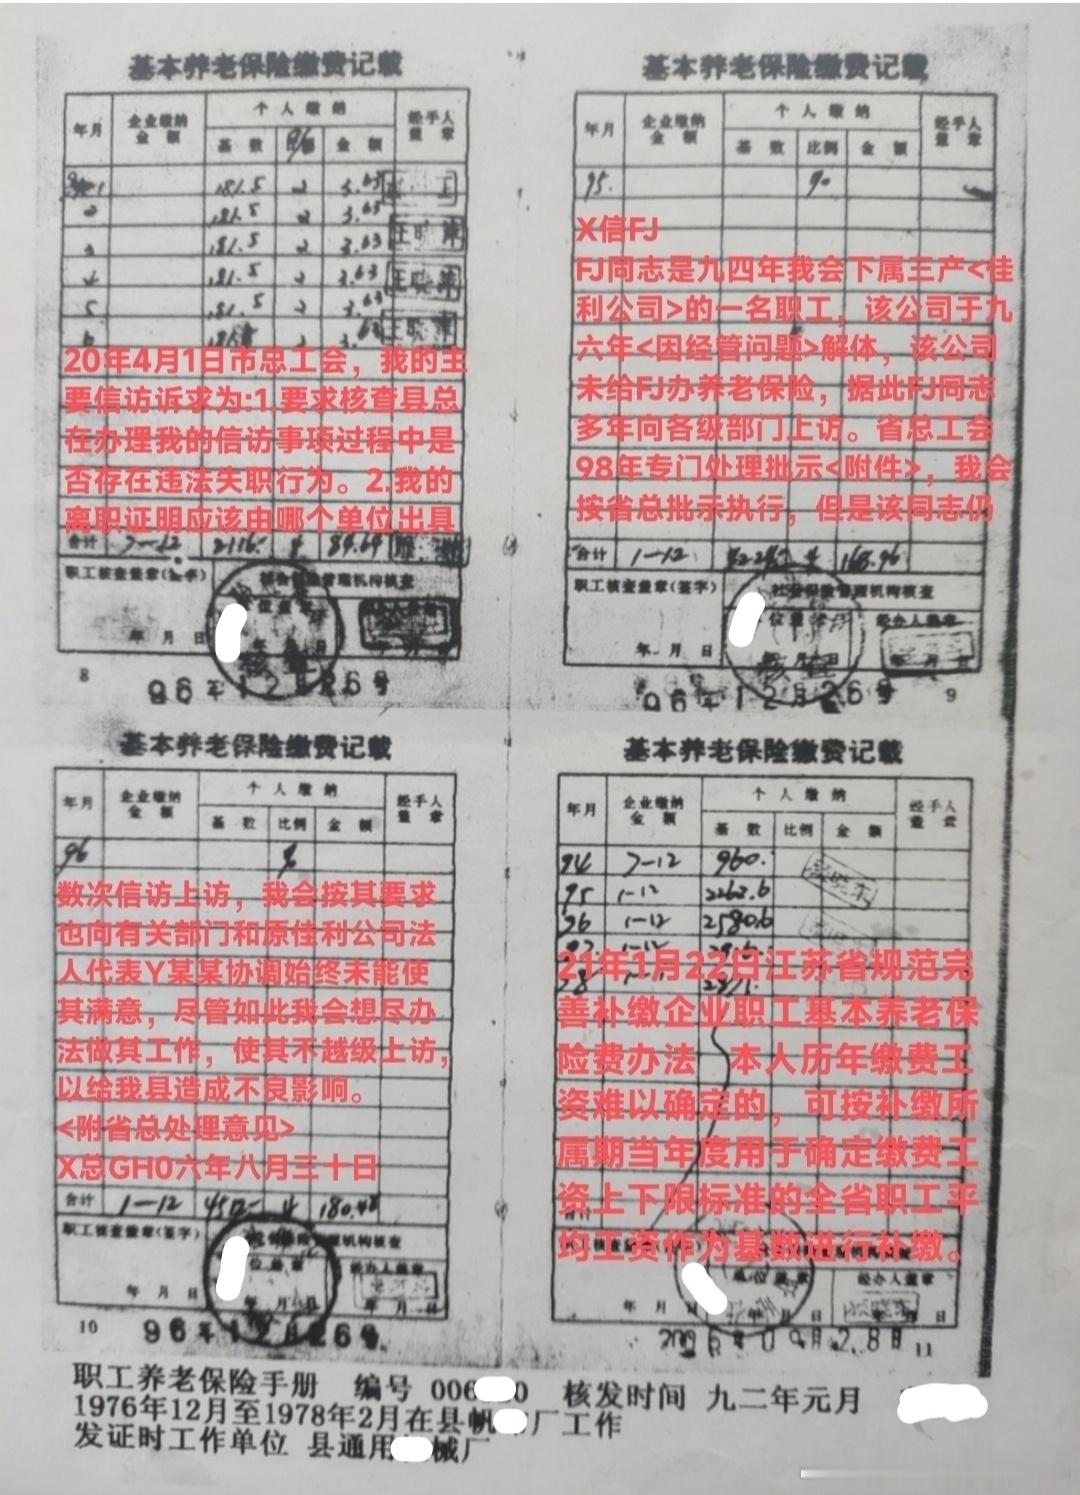 基本养老保险缴费记载
年月 企业缴纳金额 个人缴纳 经手人盖章
基数 金额
1 181.5 2 3.63
2 181.5 2 3.63
3 181.5 2 3.63
4 181.5 2 3.63
5 181.5 2 3.63
6
20年4月1日市总工会，我的主
要信访诉求为:1.要求核查县总
在办理我的信访事项过程中是
否存在违法失职行为。2.我的
离职证明应该由哪个单位出具
合计 7—12 2116. 4 84.64
职工核查盖章(签字) 社会保险管理机构核查
年 月 日
8
96年12月26号
基本养老保险缴费记载
年月 企业缴纳金额 个人缴纳 经手人盖章
基数 比例 金额
95. %
X信FJ
FJ同志是九四年我会下属三产<佳
利公司>的一名职工，该公司于九
六年<因经管问题>解体，该公司
未给FJ办养老保险，据此FJ同志
多年向各级部门上访。省总工会
98年专门处理批示<附件>，我会
按省总批示执行，但是该同志仍
合计 1—12 4 168.96
职工核查盖章(签字) 社会保险管理机构核查
单位盖章 经办人盖章
年 月 日 年 月 日 年 月 日
96年12月26号
9
基本养老保险缴费记载
年月 企业缴纳金额 个人缴纳 经手人盖章
基数 比例 金额
96 %
数次信访上访，我会按其要求
也向有关部门和原佳利公司法
人代表Y某某协调始终未能使
其满意，尽管如此我会想尽办
法做其工作，使其不越级上访，
以给我县造成不良影响。
<附省总处理意见>
X总GH0六年八月三十日
合计 1—12 4512- 4 180.48
职工核查盖章(签字) 社会保险管理机构核查
单位盖章 经办人盖章
年 月 日 年 月 日 年 月 日
10
96年12月26号
基本养老保险缴费记载
年月 企业缴纳金额 个人缴纳 经手人盖章
基数 比例 金额
94 7—12 960.
95 1-12 2263.6
96 1—12 2580.6
97 1—12
98
21年1月22日江苏省规范完
善补缴企业职工基本养老保
险费办法 本人历年缴费工
资难以确定的，可按补缴所
属期当年度用于确定缴费工
资上下限标准的全省职工平
均工资作为基数进行补缴。
单位盖章 经办人盖章
年 月 日 年 月 日 年 月 日
2006年09月28日
11
职工养老保险手册 编号 006 0 核发时间 九二年元月
1976年12月至1978年2月在县帆 厂工作
发证时工作单位 县通用 械厂